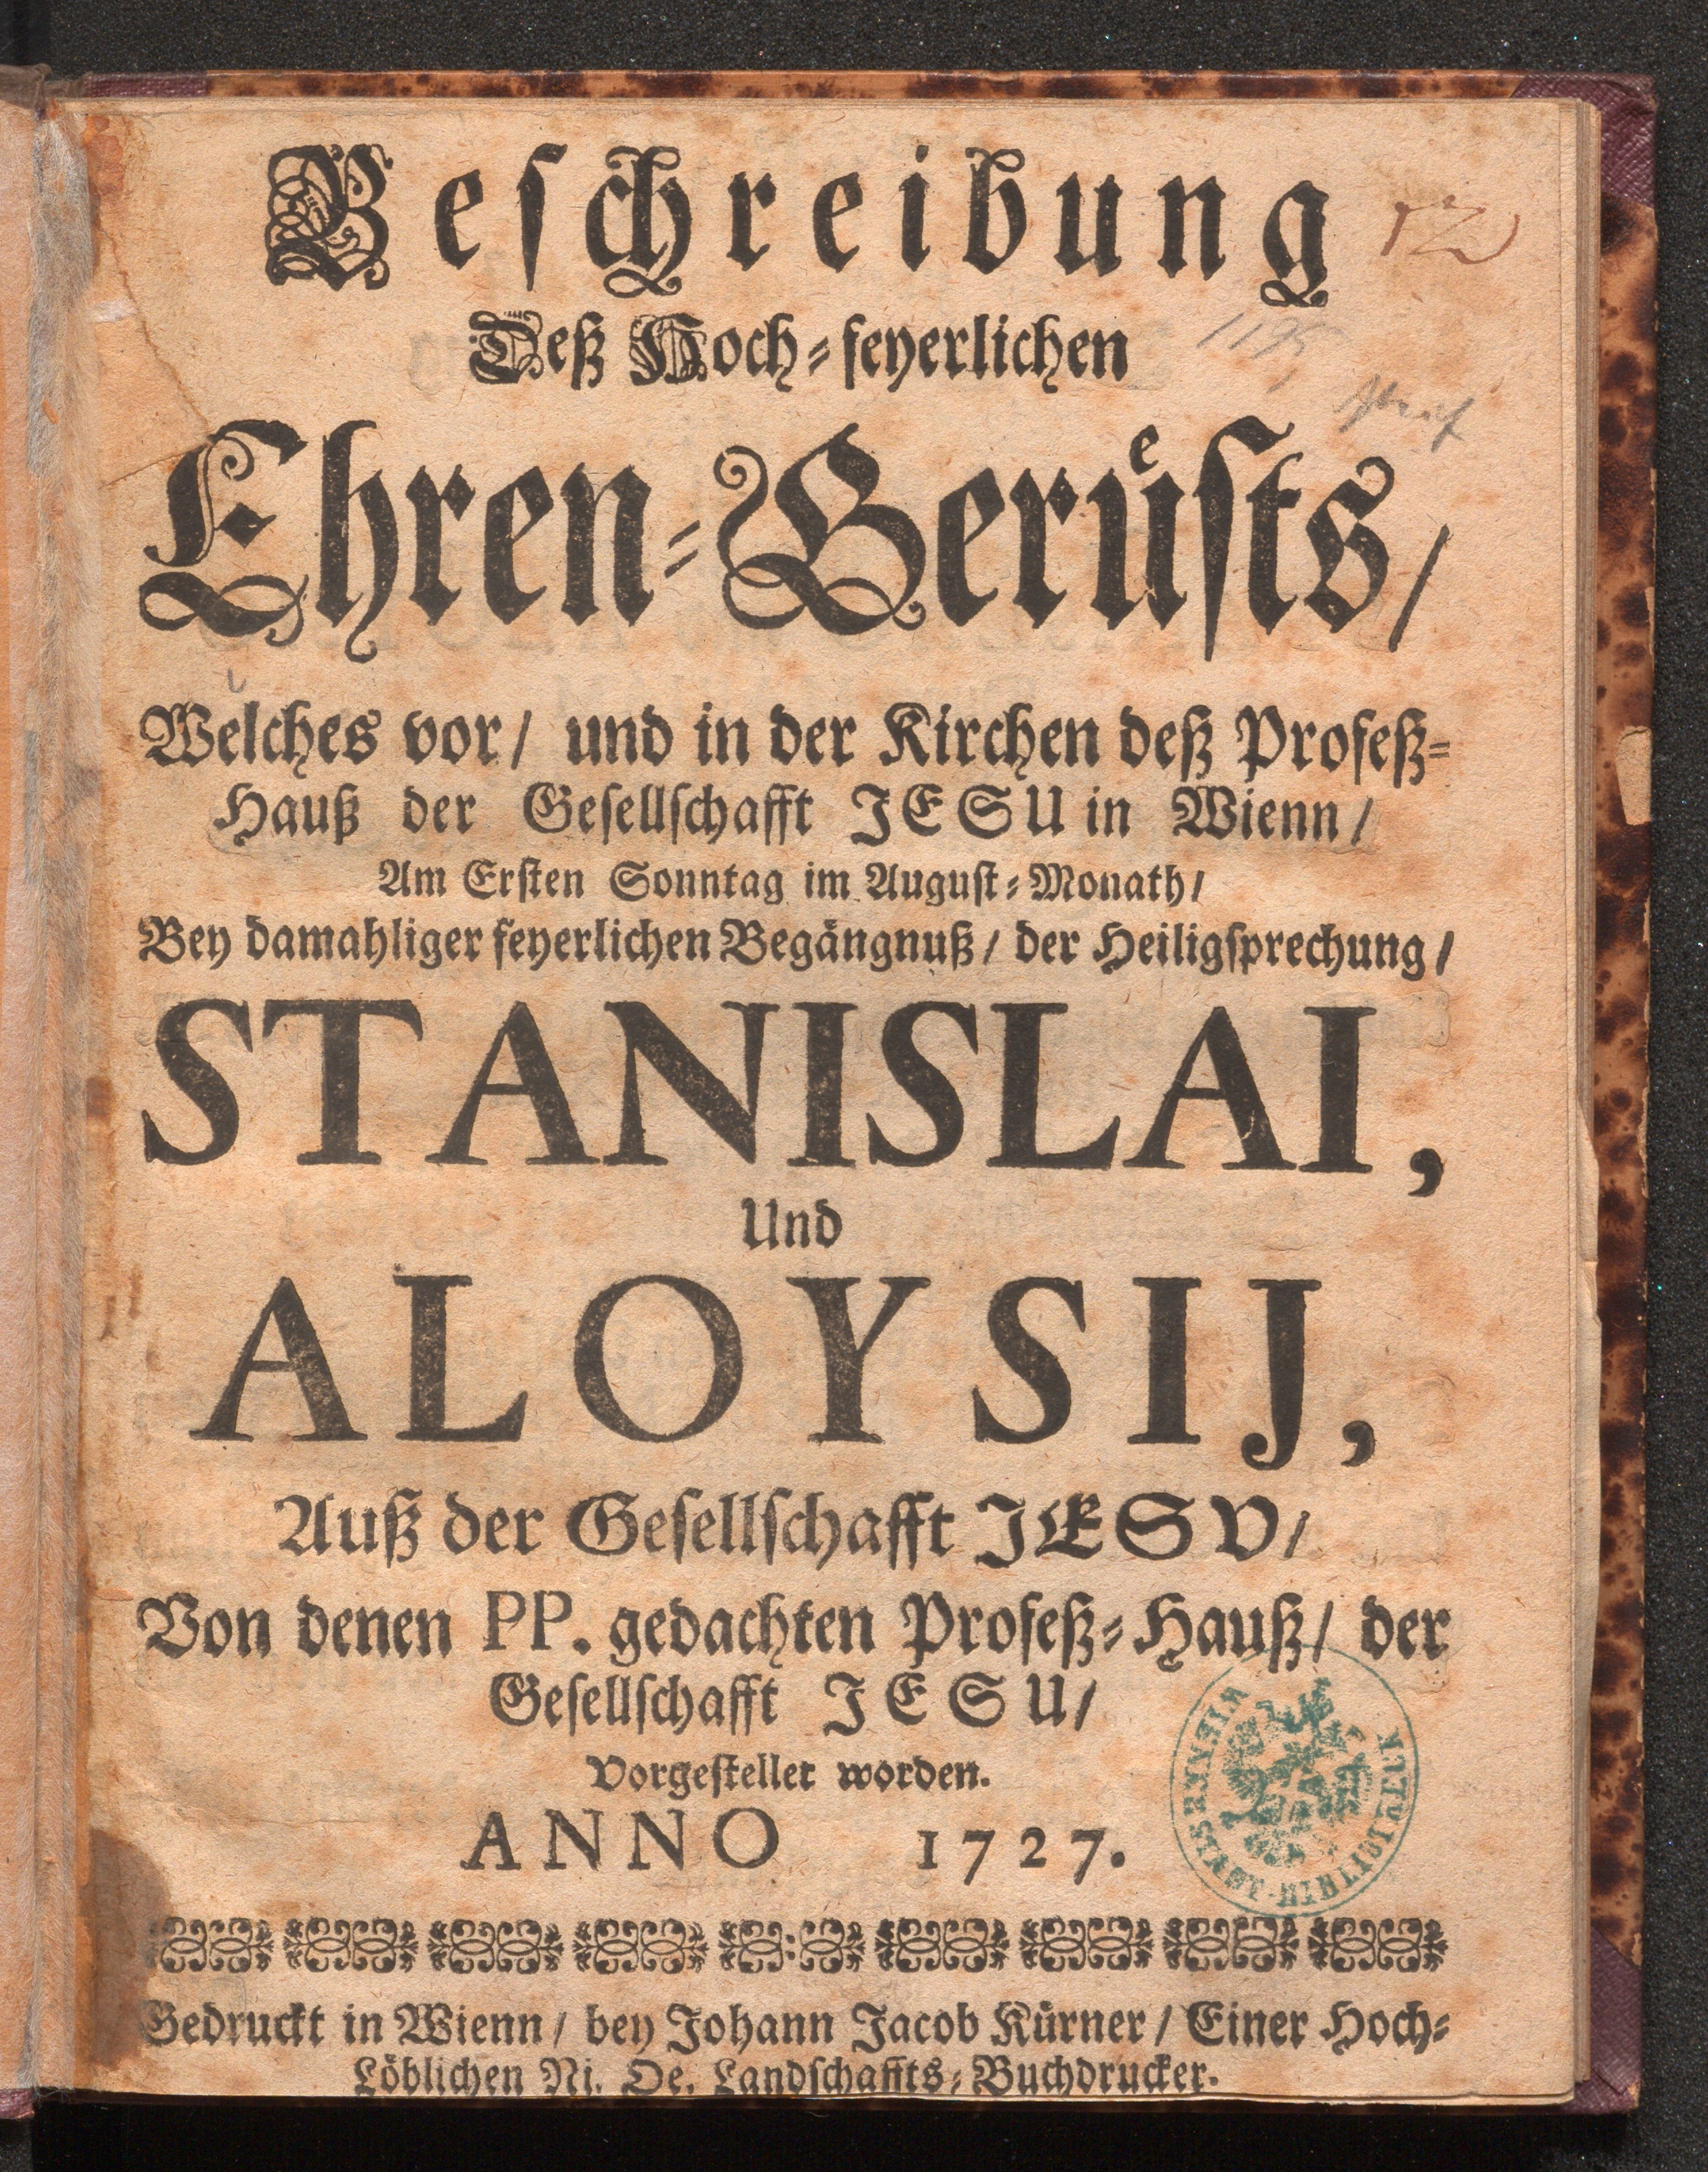 Beschreibung
Deß Hoch-feyerlichen
Ehren-Gerüsts/
Welches vor/ und in der Kirchen deß Profeß-
Hauß der Gesellschafft JESU in Wienn/
Am Ersten Sonntag im August-Monath/
Bey damahliger feyerlichen Begängnuß/ der Heiligsprechung/
STANISLAI,
Und
ALOYSIJ,
Auß der Gesellschafft JESV/
Von denen PP. gedachten Profeß-Hauß/ der
Gesellschafft JESU/
Vorgestellet worden.
ANNO 1727.
Gedruckt in Wienn/ bey Johann Jacob Kürner/ Einer Hoch-
Löblichen Ni. Oe. Landschaffts-Buchdrucker.
WIENER STADT-BIBLIOTHEK